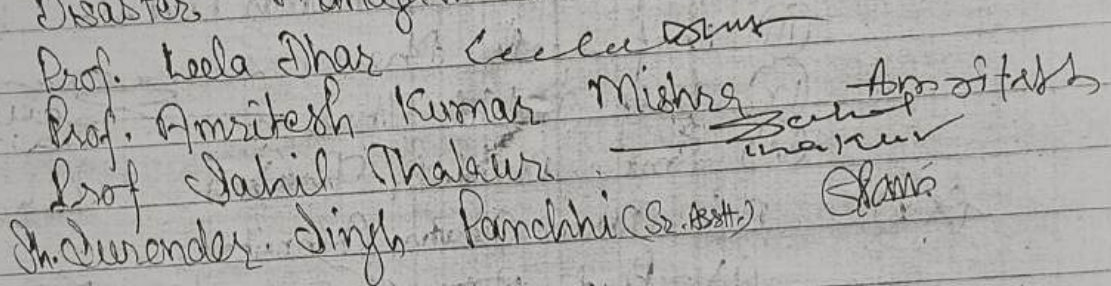 Disaster
Prof. Leela Dhar Leela Dhar
Prof. Amritesh Kumar Mishra Amritesh
Prof Sahil Thakur Sahil Thakur
Sh. Surender Singh Panchhi (Sr. Asstt.)